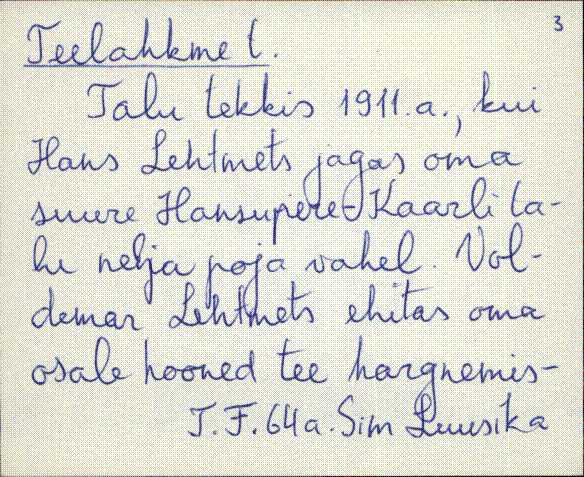 3
Teelahkme t.
Talu tekkis 1911.a., kui
Hans Lehtmets jagas oma
suure Hansupere-Kaarli ta-
lu nelja poja vahel. Vol-
demar Lehtmets ehitas oma
osale hooned tee hargnemis-
T.F. 64a. Sim Luusika